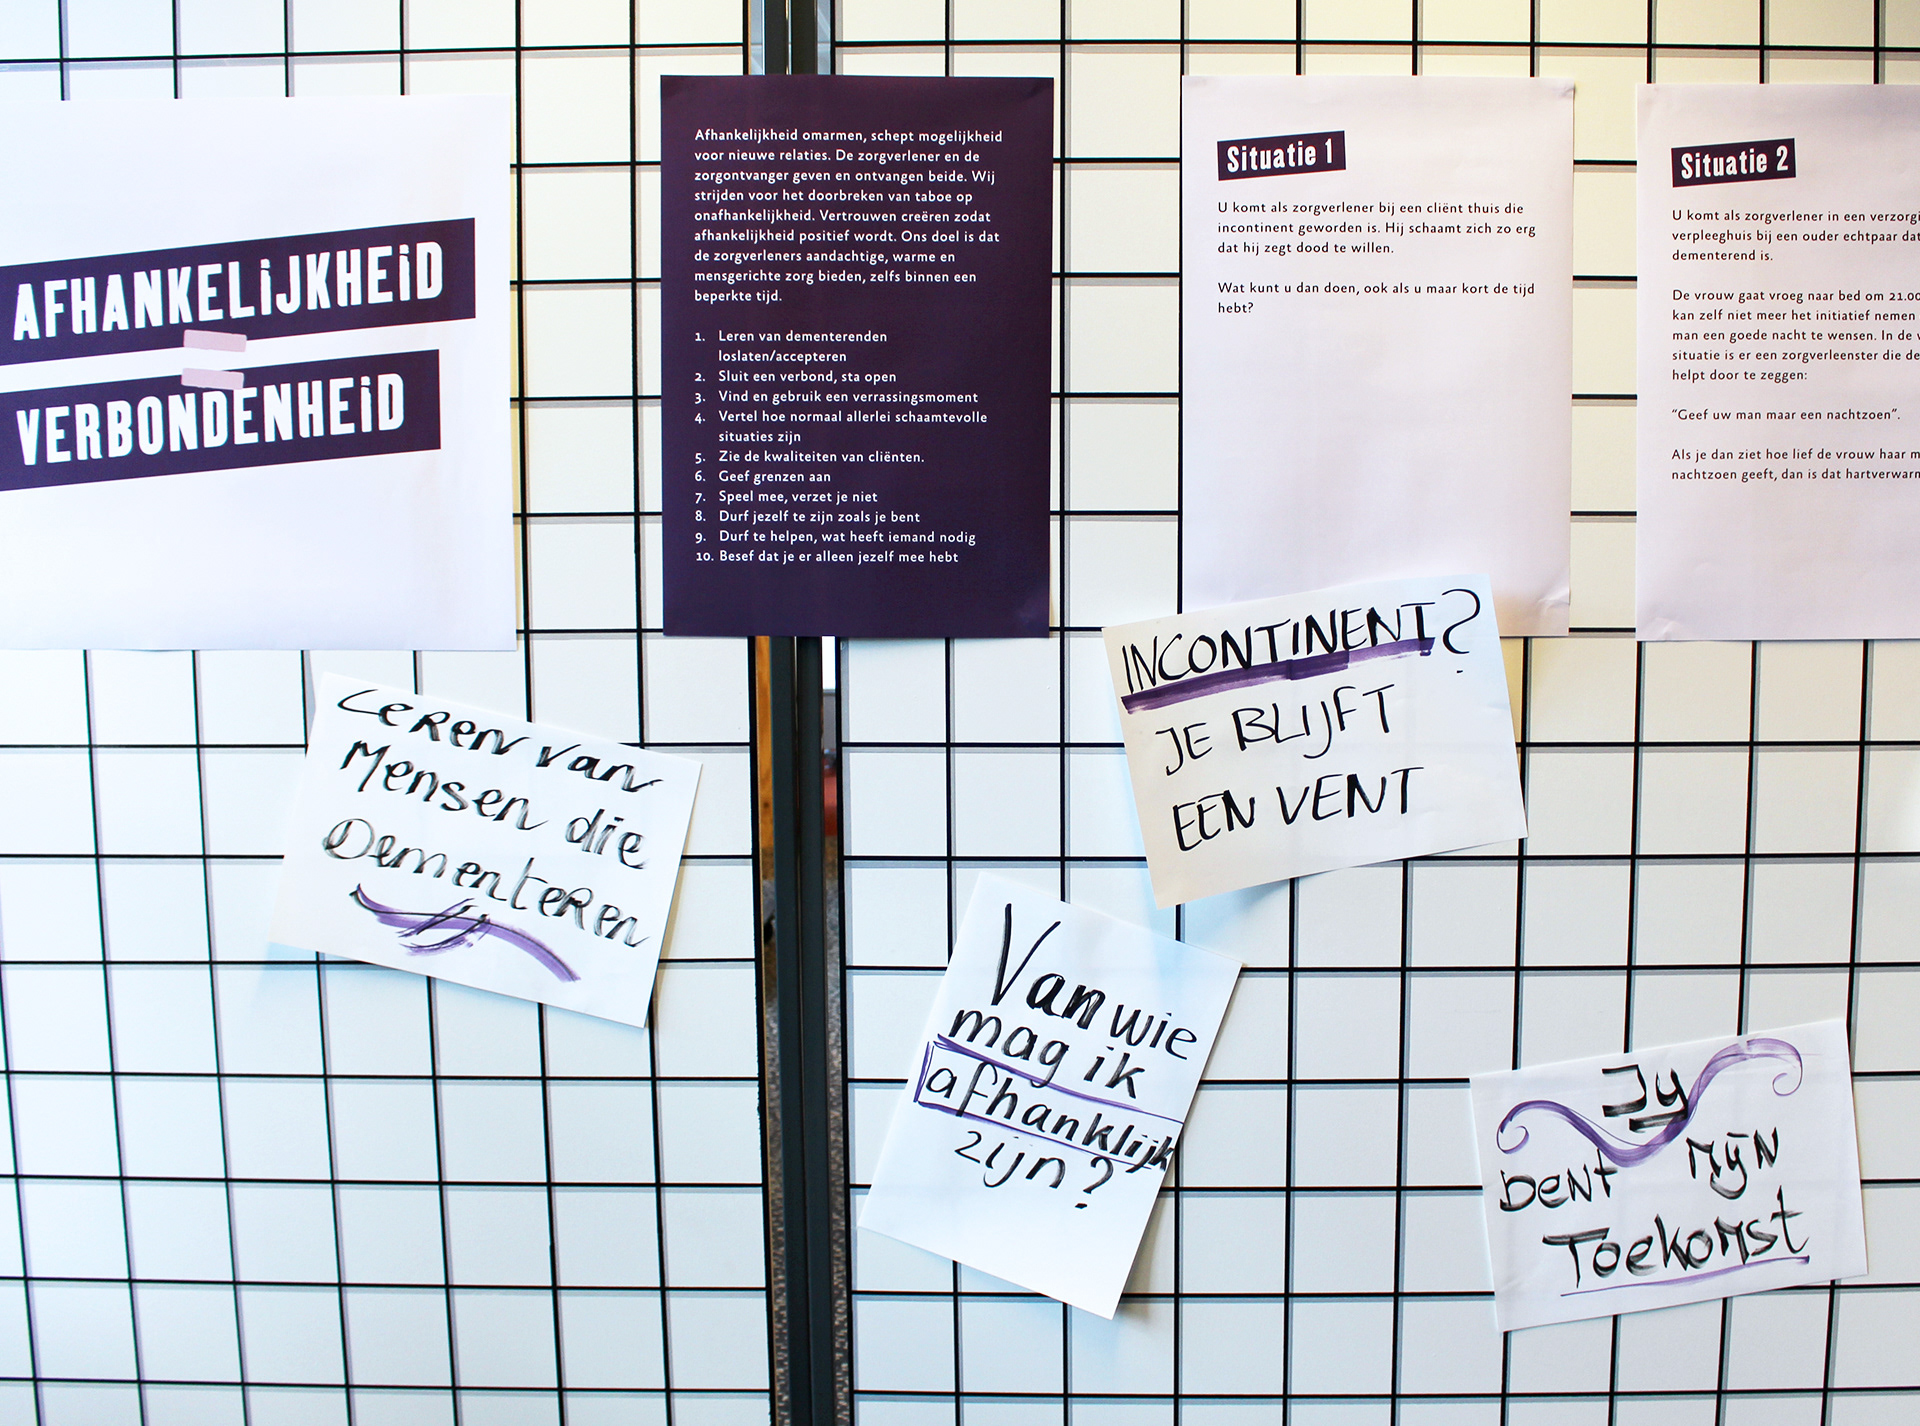 AFHANKELiJKHEiD
VERBONDENHEiD
Afhankelijkheid omarmen, schept mogelijkheid
voor nieuwe relaties. De zorgverlener en de
zorgontvanger geven en ontvangen beide. Wij
strijden voor het doorbreken van taboe op
onafhankelijkheid. Vertrouwen creëren zodat
afhankelijkheid positief wordt. Ons doel is dat
de zorgverleners aandachtige, warme en
mensgerichte zorg bieden, zelfs binnen een
beperkte tijd.
1. Leren van dementerenden
loslaten/accepteren
2. Sluit een verbond, sta open
3. Vind en gebruik een verrassingsmoment
4. Vertel hoe normaal allerlei schaamtevolle
situaties zijn
5. Zie de kwaliteiten van cliënten.
6. Geef grenzen aan
7. Speel mee, verzet je niet
8. Durf jezelf te zijn zoals je bent
9. Durf te helpen, wat heeft iemand nodig
10. Besef dat je er alleen jezelf mee hebt
Situatie 1
U komt als zorgverlener bij een cliënt thuis die
incontinent geworden is. Hij schaamt zich zo erg
dat hij zegt dood te willen.
Wat kunt u dan doen, ook als u maar kort de tijd
hebt?
Situatie 2
U komt als zorgverlener in een verzorgi
verpleeghuis bij een ouder echtpaar dat
dementerend is.
De vrouw gaat vroeg naar bed om 21.00
kan zelf niet meer het initiatief nemen
man een goede nacht te wensen. In de
situatie is er een zorgverleenster die de
helpt door te zeggen:
“Geef uw man maar een nachtzoen”.
Als je dan ziet hoe lief de vrouw haar m
nachtzoen geeft, dan is dat hartverwarm
Leren van
Mensen die
Dementeren
INCONTINENT?
JE BLIJFT
EEN VENT
Van wie
mag ik
afhanklijk
zijn?
Jy
bent mijn
Toekomst